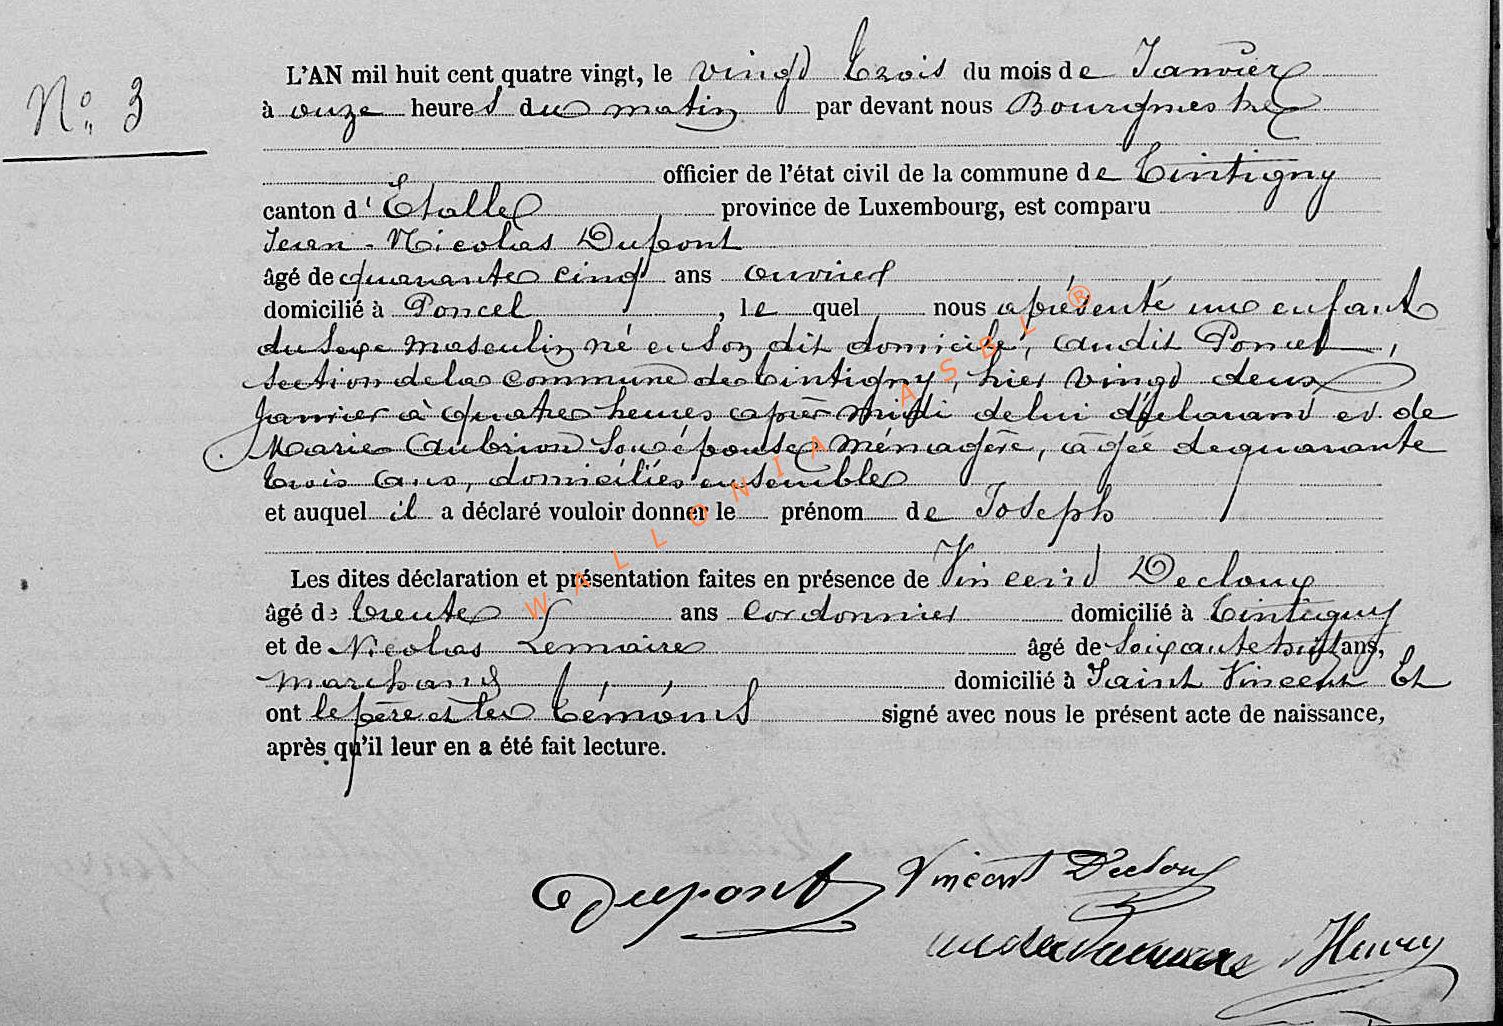 N° 3
L'AN mil huit cent quatre vingt, le vingt trois du mois de Janvier
à onze heures du matin par devant nous Bourgmestre
officier de l'état civil de la commune de Tintigny
canton d'Etalle province de Luxembourg, est comparu
Jean-Nicolas Dupont
âgé de quarante cinq ans ouvrier
domicilié à Poncel, le quel nous a présenté un enfant
du sexe masculin né en son dit domicile, audit Poncel,
section de la commune de Tintigny, hier vingt deux
Janvier à quatre heures après midi de lui déclarant et de
Marie Aubrion son épouse, ménagère, âgée de quarante
trois ans, domiciliés ensemble
et auquel il a déclaré vouloir donner le prénom de Joseph
Les dites déclaration et présentation faites en présence de Vincent Decloux
âgé de trente ans cordonnier domicilié à Tintigny
et de Nicolas Lemaire âgé de soixante huit ans,
marchand domicilié à Saint Vincent Et
ont le père et les témoins signé avec nous le présent acte de naissance,
après qu'il leur en a été fait lecture.
Dupont Vincent Decloux
Henry
WALLONIA ASBL ®